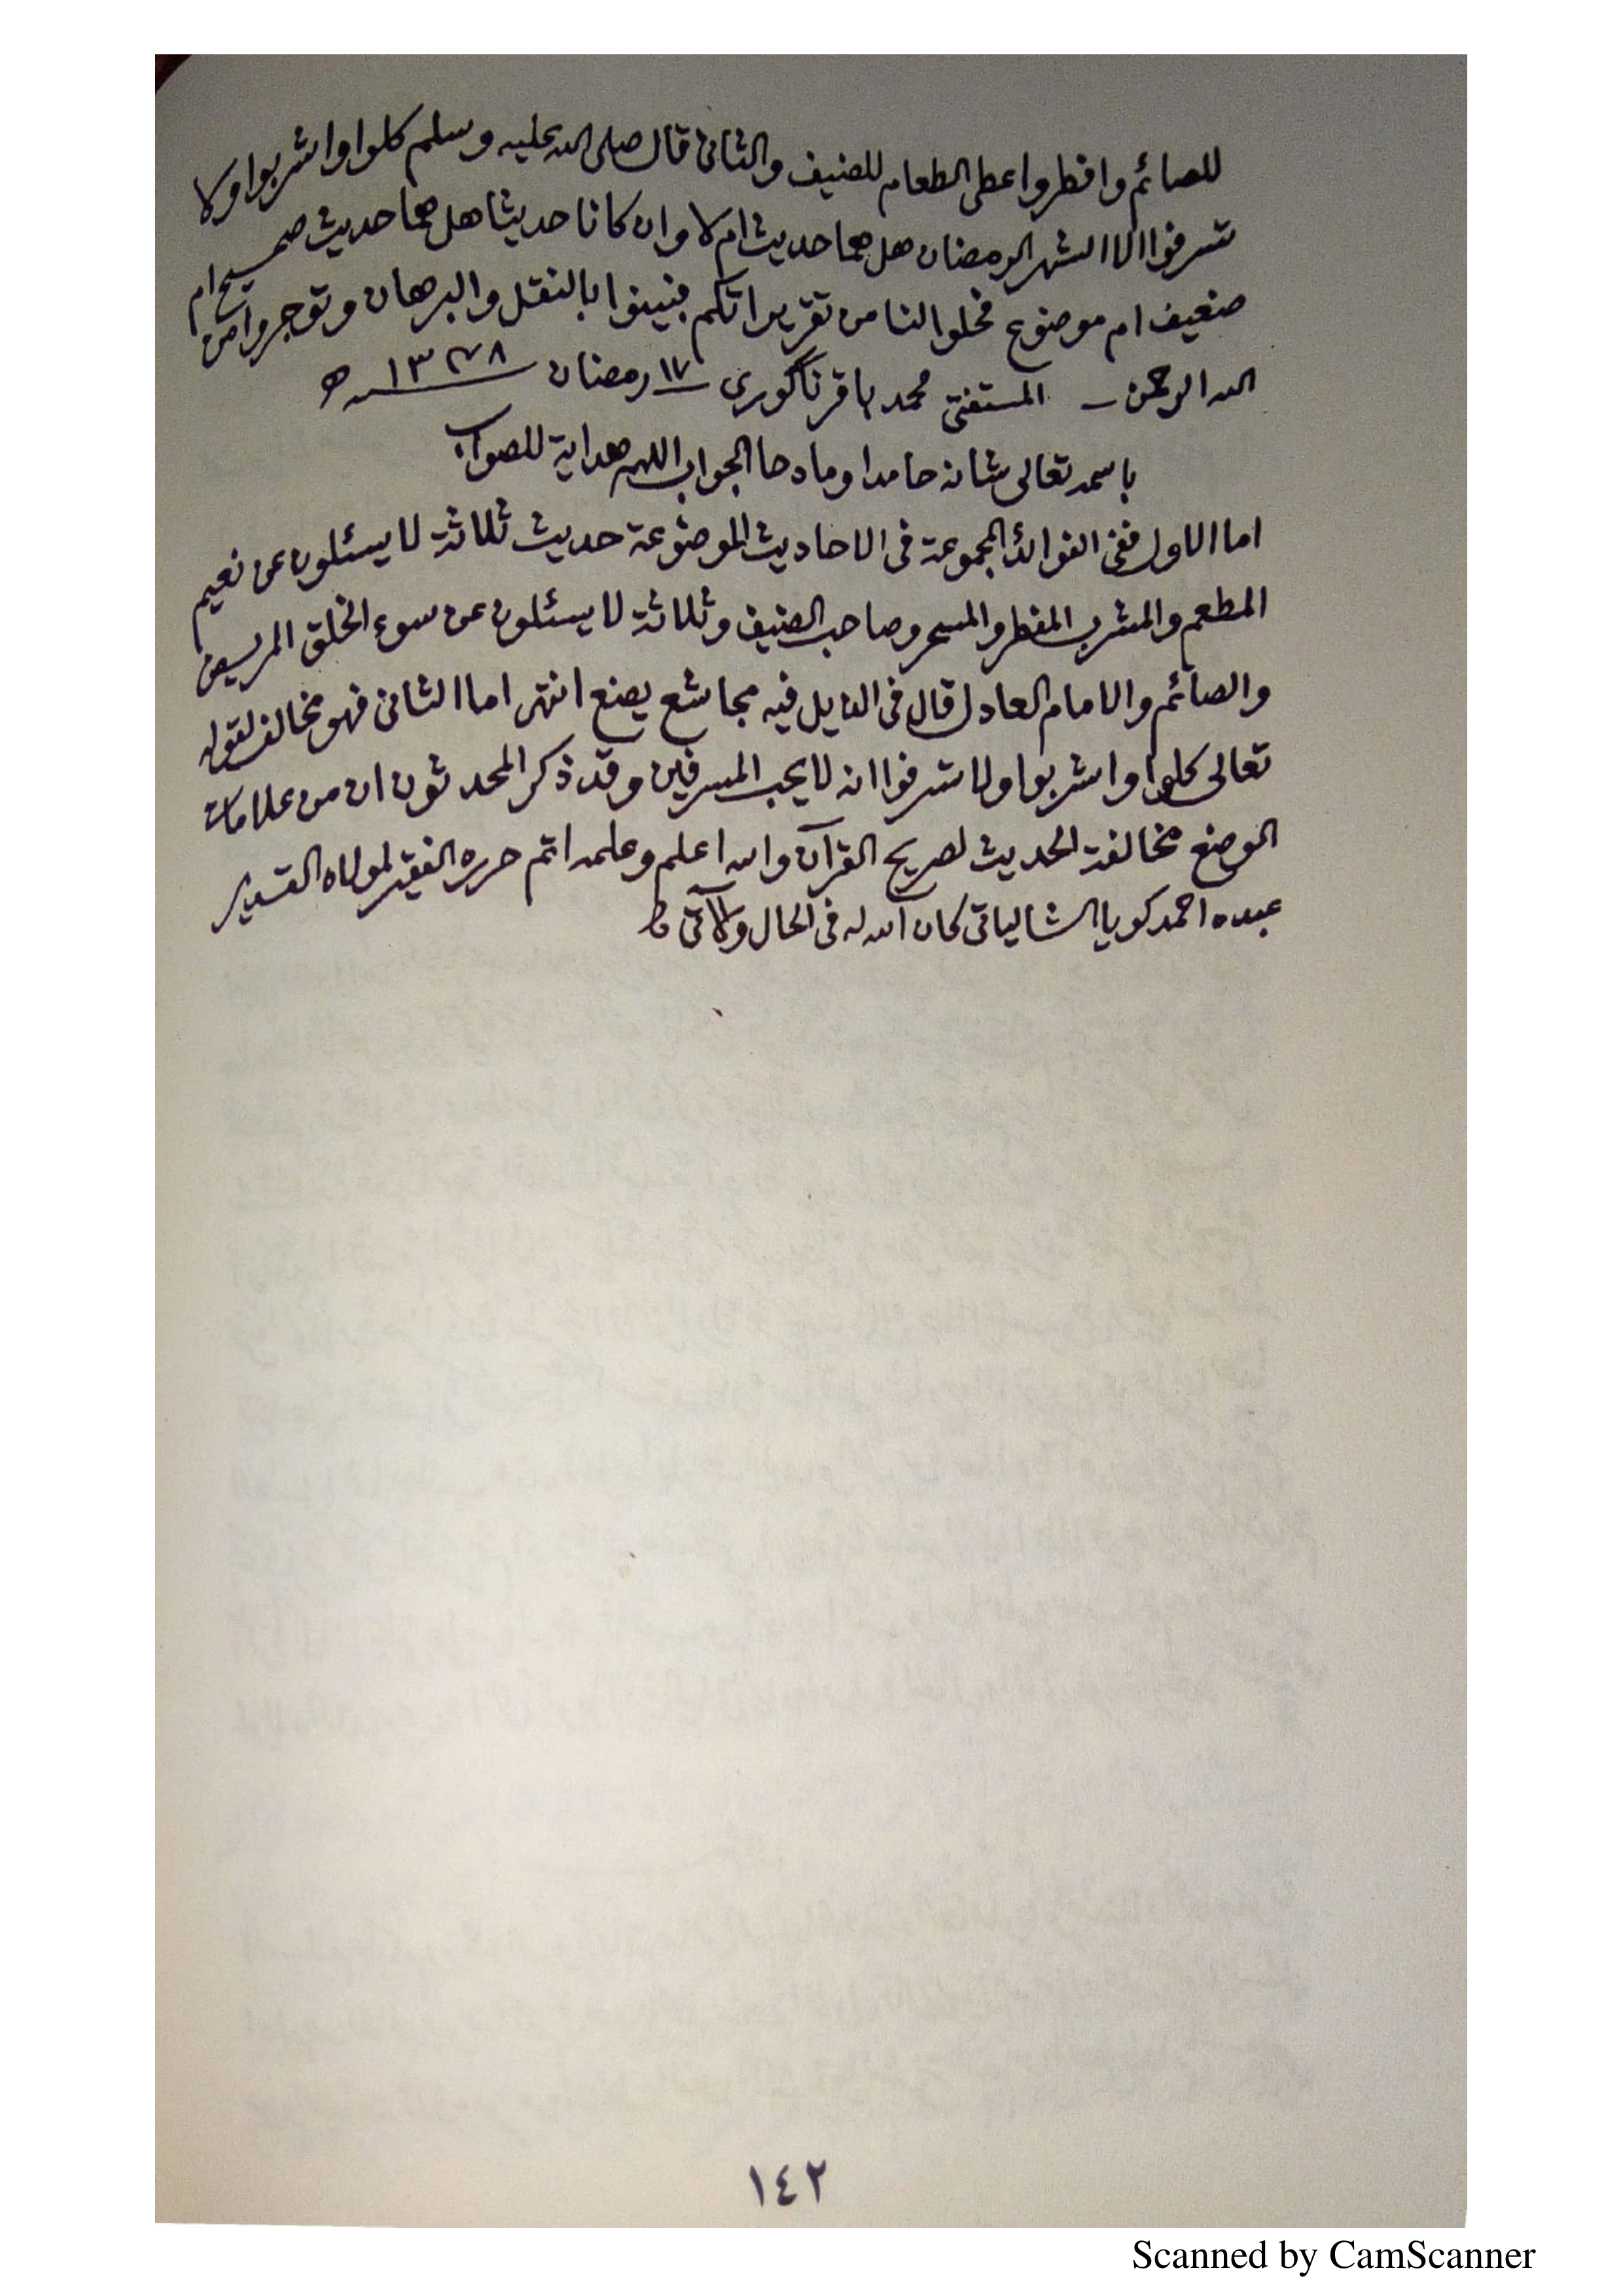 للصائم وافطروا عطى الطعام للضيف والثانى قال صلى الله عليه وسلم كلوا واشربوا ولا
تسرفوا الا الشهر الرمضان هل هما حديث ام لا وان كانا حديثا هل هما حديث صحيح ام
ضعيف ام موضوع فحلوا لنا من تقريراتكم فبينوا بالنقل والبرهان وتوجروا من
الله الرحمن ــ المستفتى محمد باقر ناكورى ١٧ رمضان ١٣٧٨ هـ
باسمه تعالى شانه حامدا ومادحا الجواب اللهم هداية للصواب
اما الاول ففى الفوائد المجموعة فى الاحاديث الموضوعة حديث ثلاثة لا يسئلون عن نعيم
المطعم والمشرب المفطر والمتسحر وصاحب الضيف وثلاثة لا يسئلون عن سوء الخلق المريض
والصائم والامام العادل قال فى الذيل فيه مجاشع يضع انتهى اما الثانى فهو مخالف لقوله
تعالى كلوا واشربوا ولا تسرفوا انه لا يحب المسرفين وقد ذكر المحدثون ان من علامات
الوضع مخالفة الحديث لصريح القرآن والله اعلم وعلمه اتم حرره الفقير لمولاه القدير
عبده احمد كويا الشالياتى كان الله له فى الحال والآتى ط
١٤٢
Scanned by CamScanner